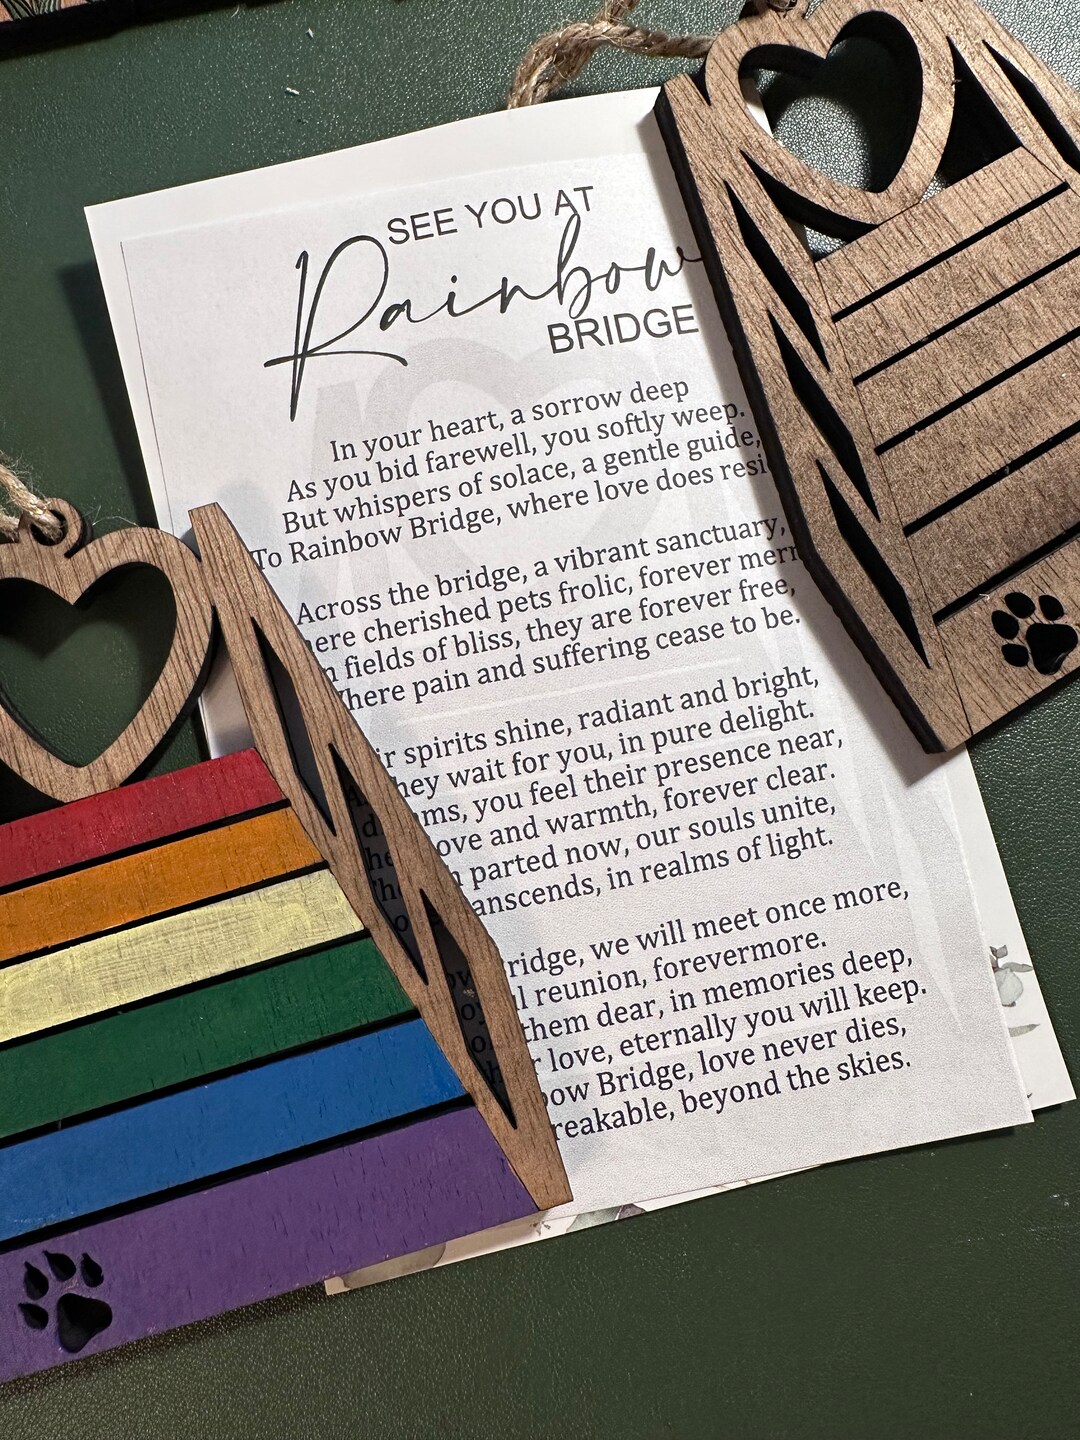 SEE YOU AT
Rainbow
BRIDGE
In your heart, a sorrow deep
As you bid farewell, you softly weep.
But whispers of solace, a gentle guide,
To Rainbow Bridge, where love does
Across the bridge, a vibrant sanctuary,
cherished pets frolic, forever
fields of bliss, they are forever free,
Where pain and suffering cease to be.
spirits shine, radiant and bright,
they wait for you, in pure delight.
you feel their presence near,
love and warmth, forever clear.
parted now, our souls unite,
transcends, in realms of light.
Bridge, we will meet once more,
reunion, forevermore.
them dear, in memories deep,
love, eternally you will keep.
Bridge, love never dies,
beyond the skies.